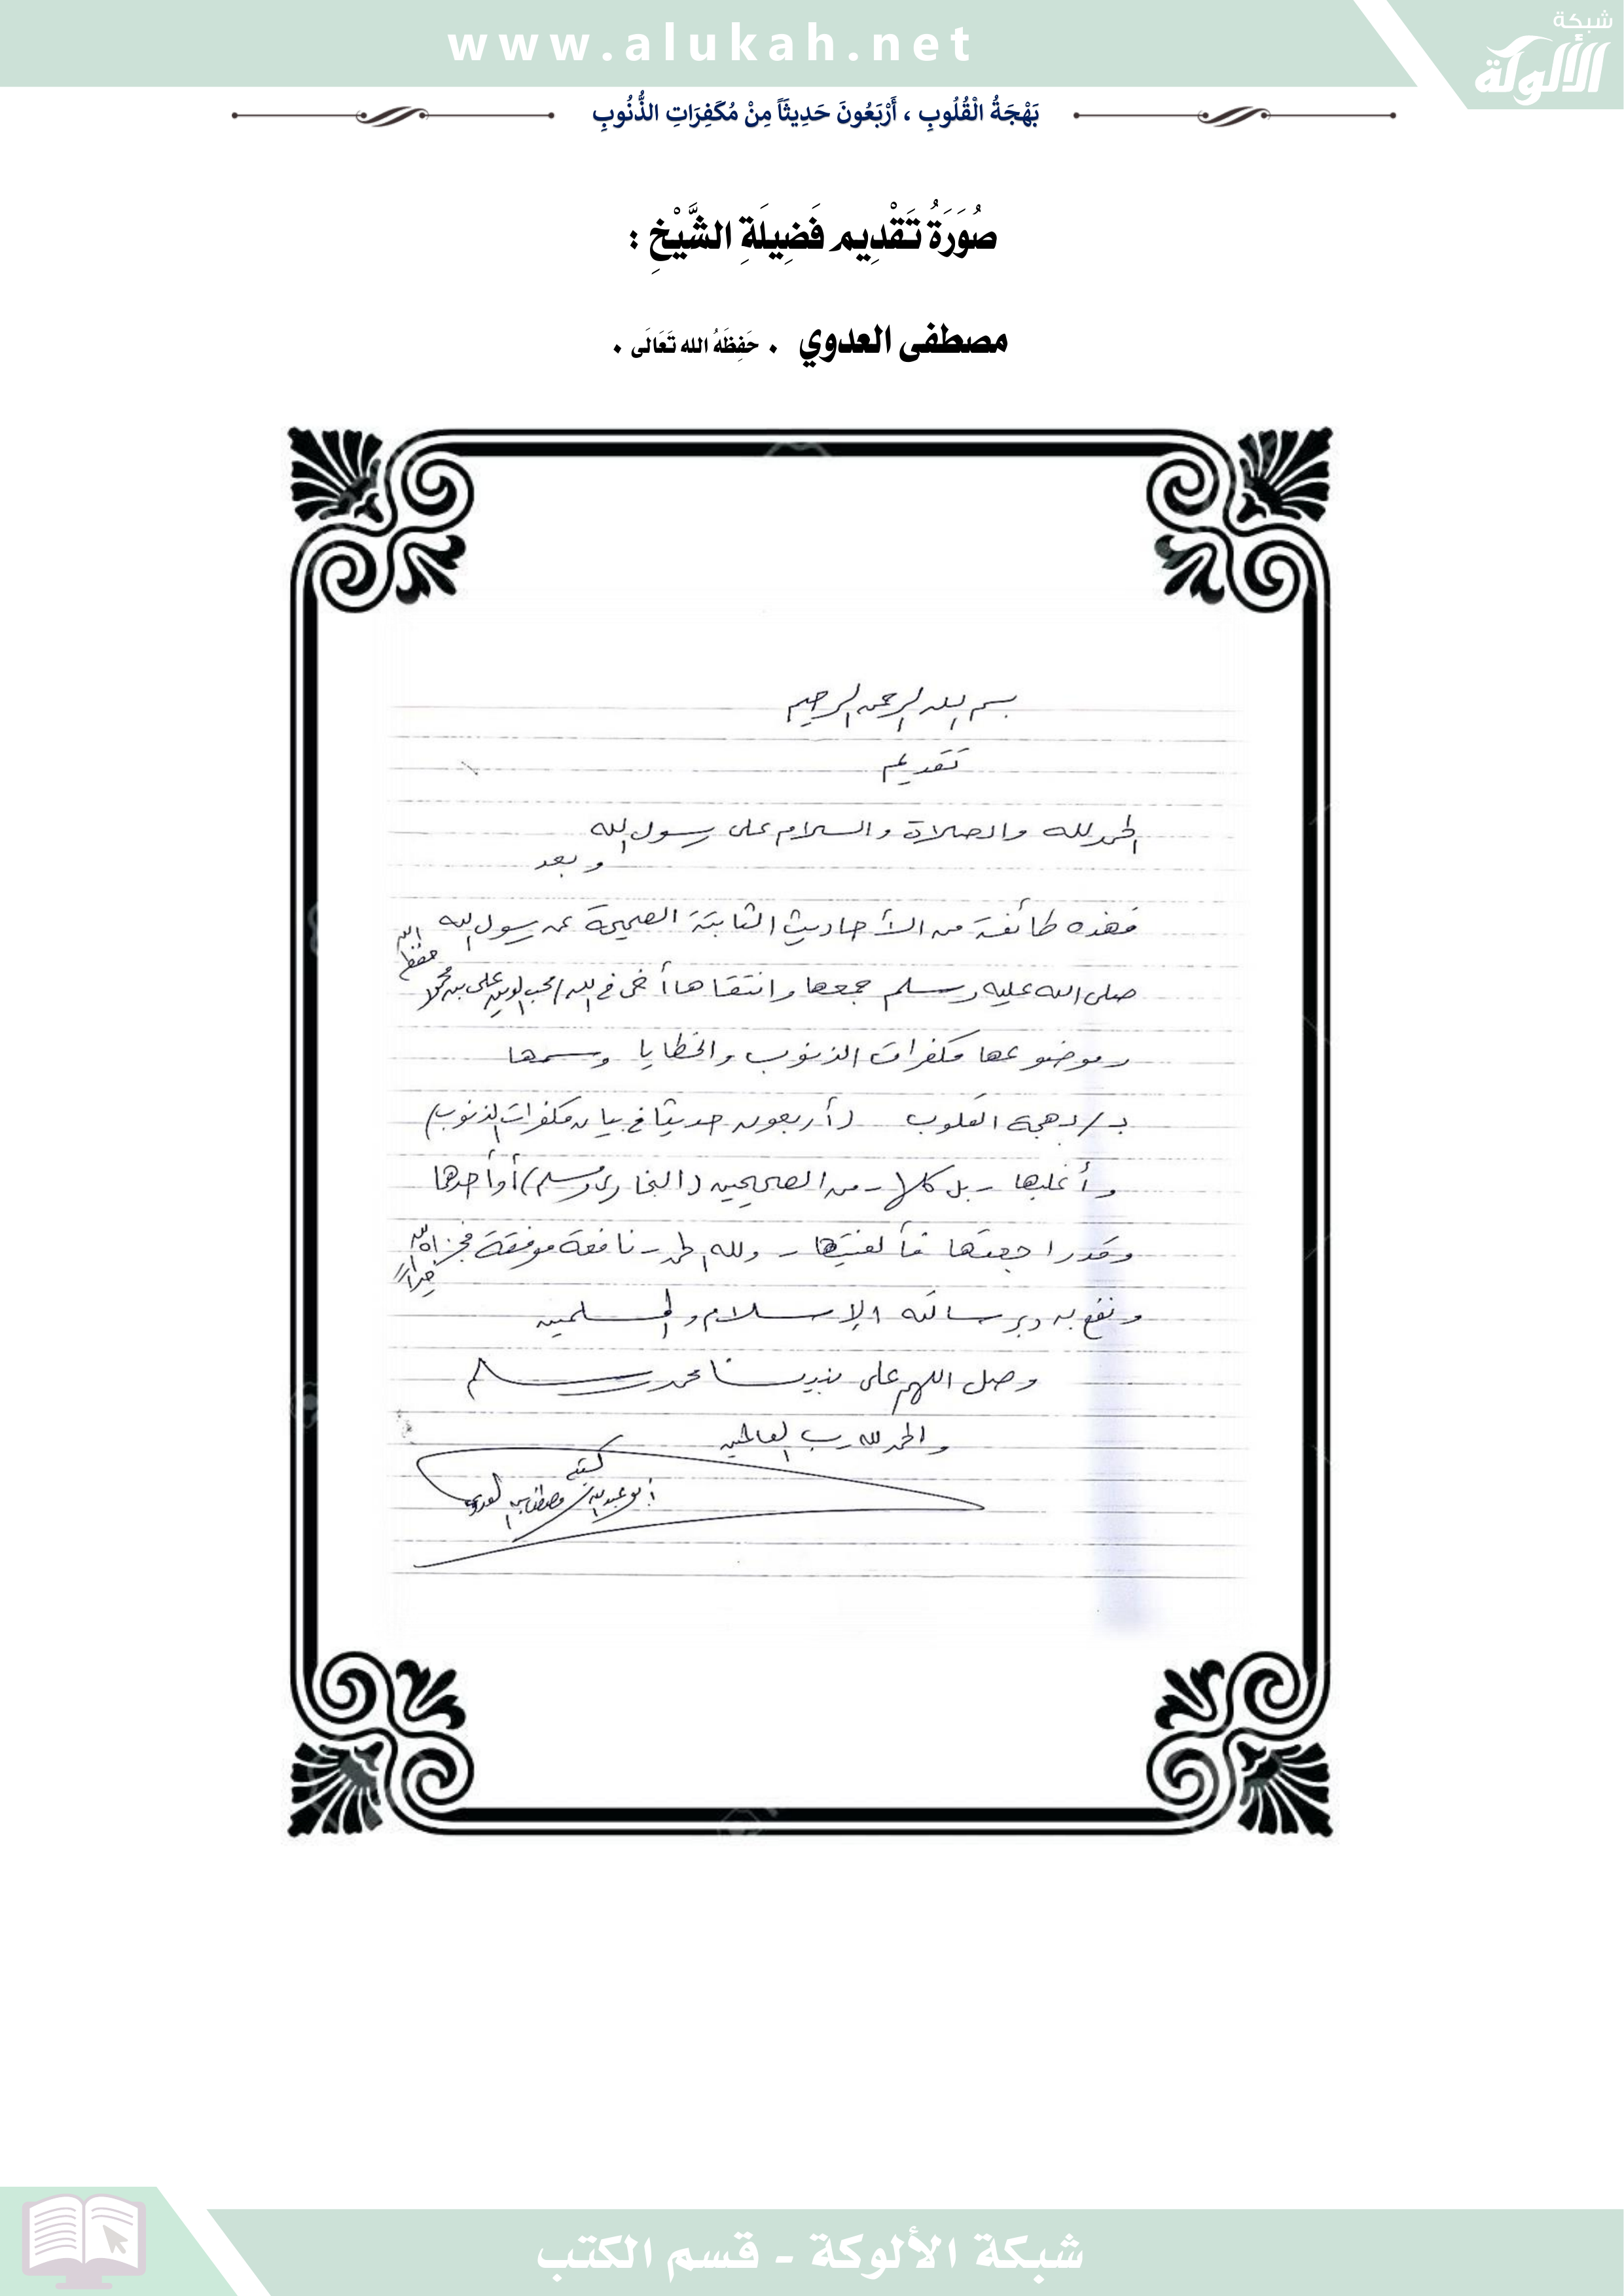 www.alukah.net
شبكة
الألوكة
بَهْجَةُ الْقُلُوبِ ، أَرْبَعُونَ حَدِيثَاً مِنْ مُكَفِرَاتِ الذُّنُوبِ
صُوَرَةُ تَقْدِيم فَضِيلَةِ الشَّيْخِ :
مصطفى العدوي . حَفِظَهُ الله تَعَالَى .
بسم الله الرحمن الرحيم
تقديم
الحمد لله والصلاة والسلام على رسول الله
وبعد
فهذه طائفة من الأحاديث الثابتة الصحيحة عن رسول الله
صلى الله عليه وسلم جمعها وانتقاها أخي في الله / محب الدين علي بن محمود حفظه الله
وموضوعها مكفرات الذنوب والخطايا وسمها
بـ / بهجة القلوب (أربعون حديثا في بيان مكفرات الذنوب)
وأغلبها - بل كلها - من الصحيحين (البخاري ومسلم) أو أحدهما
وقد راجعتها فألفيتها - ولله الحمد - نافعة موفقة فجزاه الله خيرا
ونفع به وبرسالته الإسلام والمسلمين
وصل اللهم على نبينا محمد وسلم
والحمد لله رب العالمين
كتبه
أبو عبد الله مصطفى بن العدوي
شبكة الألوكة - قسم الكتب